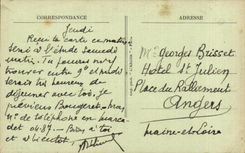 CORRESPONDANCE
ADRESSE
Jeudi
Reçu ta carte ce matin
serai à l'Etude samedi
matin. Tu pourras m'y
trouver entre 9h et midi
serais très heureux de
déjeuner avec toi. Je
préviens Bougère
N° de téléphone en
dat 04.87. Bien à toi
et à bientôt.
Mr Georges Brisset
Hotel St Julien
Place du Ralliement
Angers
Maine et Loire